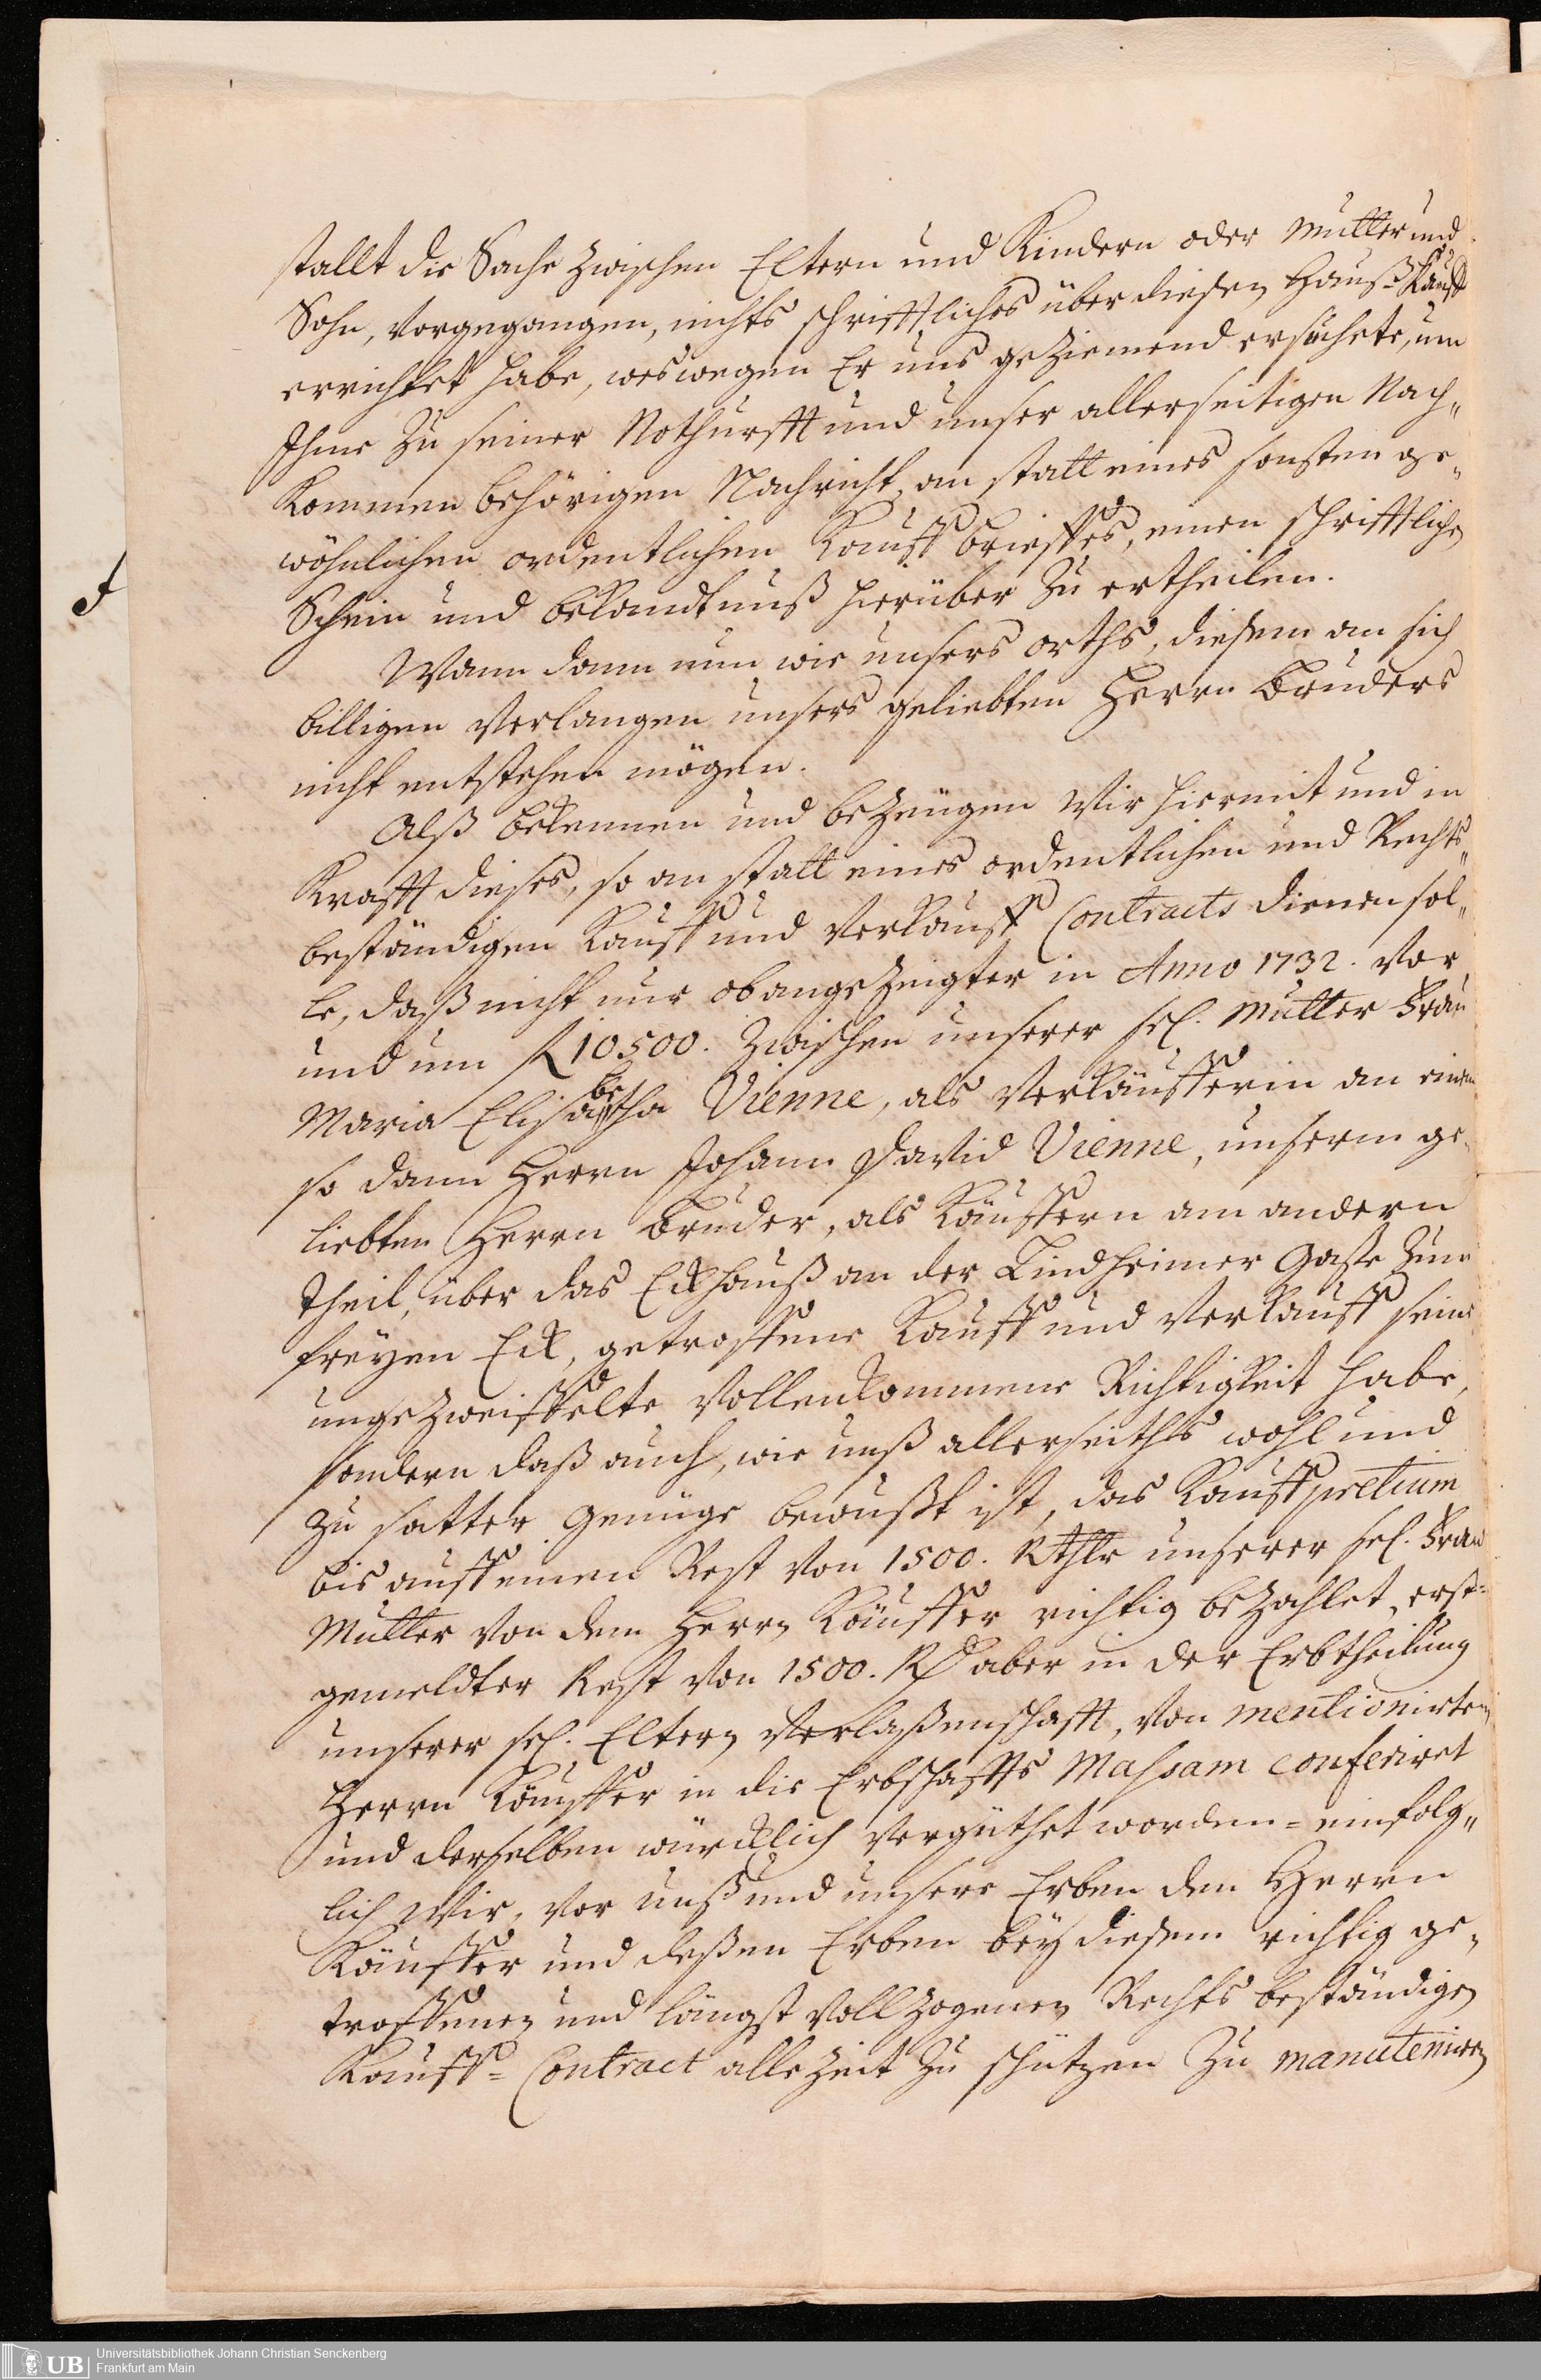 stallt die Sache zwischen Eltern und Kindern oder Mutter und
Sohn, vorgegangen, nichts schrifftliches über diesen Hauß-Kauff
errichtet habe, weswegen Er uns geziemend ersuchete, um
Ihme zu seiner Nothurfft und unser allerseitigen Nach„
kommen behörigen Nachricht, an statt eines sonsten ge„
wöhnlichen ordentlichen Kauff brieffes, einen schrifftlichen
Schein und bekandtnuß hierüber zu ertheilen.
Wann dann nun wir unsers orths, diesem an sich
billigen Verlangen unsers geliebten Herrn Bruders
nicht entstehen mögen.
Alß bekennen und bezeugen Wir hiermit und in
Krafft dieses, so an statt eines ordentlichen und Rechts„
beständigen Kauff und Verkauff Contracts dienen sol„
le, daß nicht nur obangezeigter in Anno 1732. vor
und um fl 10500. zwischen unserer sel. Mutter Frau
Maria Elisabetha Vienne, als Verkäufferin an einem
so dann Herrn Johann David Vienne, unserm ge„
liebten Herrn Bruder, als Käuffern am andern
Theil, über das Eckhauß an der Lindheimer Gaße zum
freyen Eck, getroffene Kauff und Verkauff seine
ungezweiffelte Vollenkommene Richtigkeit habe,
sondern daß auch, wie unß allerseiths wohl und
zu satter Genüge bewußt ist, das Kauffpretium
bis auff einen Rest von 1500. Rthlr unserer sel. Frau
Mutter von dem Herrn Käuffer richtig bezahlet, erst-
gemeldter Rest von 1500. Rth aber in der Erbtheilung
unserer sel. Eltern Verlaßenschafft, von mentionirten
Herrn Käuffer in die Erbschaffts Massam conferiret
und derselben würcklich vergüthet worden = einfolg„
lich Wir, vor unß und unsere Erben den Herrn
Käuffer und deßen Erben bey diesem richtig ge„
troffenen und längst vollzogenen Rechts beständigen
Kauff= Contract alle Zeit zu schützen zu manuteniren
Universitätsbibliothek Johann Christian Senckenberg
Frankfurt am Main
UB